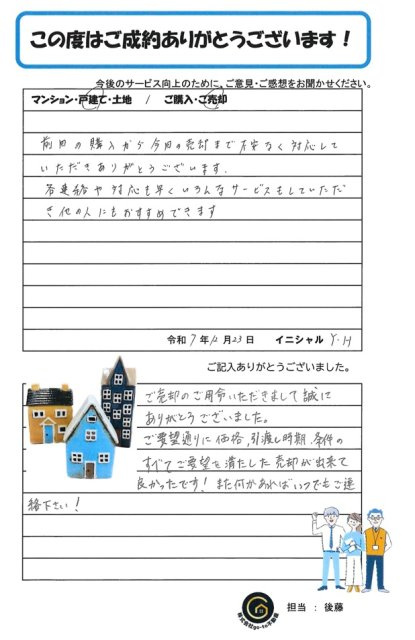 この度はご成約ありがとうございます！
今後のサービス向上のために、ご意見・ご感想をお聞かせください。
マンション・戸建て・土地 / ご購入・ご売却
前回の購入から今回の売却まで不安なく対応して
いただきありがとうございます.
各連絡や対応も早くいろんなサービスもしていただ
き他の人にもおすすめできます
令和 7 年 12 月 23 日 イニシャル Y.H
ご記入ありがとうございました。
ご売却のご用命いただきまして誠に
ありがとうございました。
ご要望通りに価格、引渡し時期、条件の
すべてご要望を満たした売却が出来て
良かったです！また何かあればいつでもご連
絡下さい！
株式会社go-to不動産
担当 ： 後藤